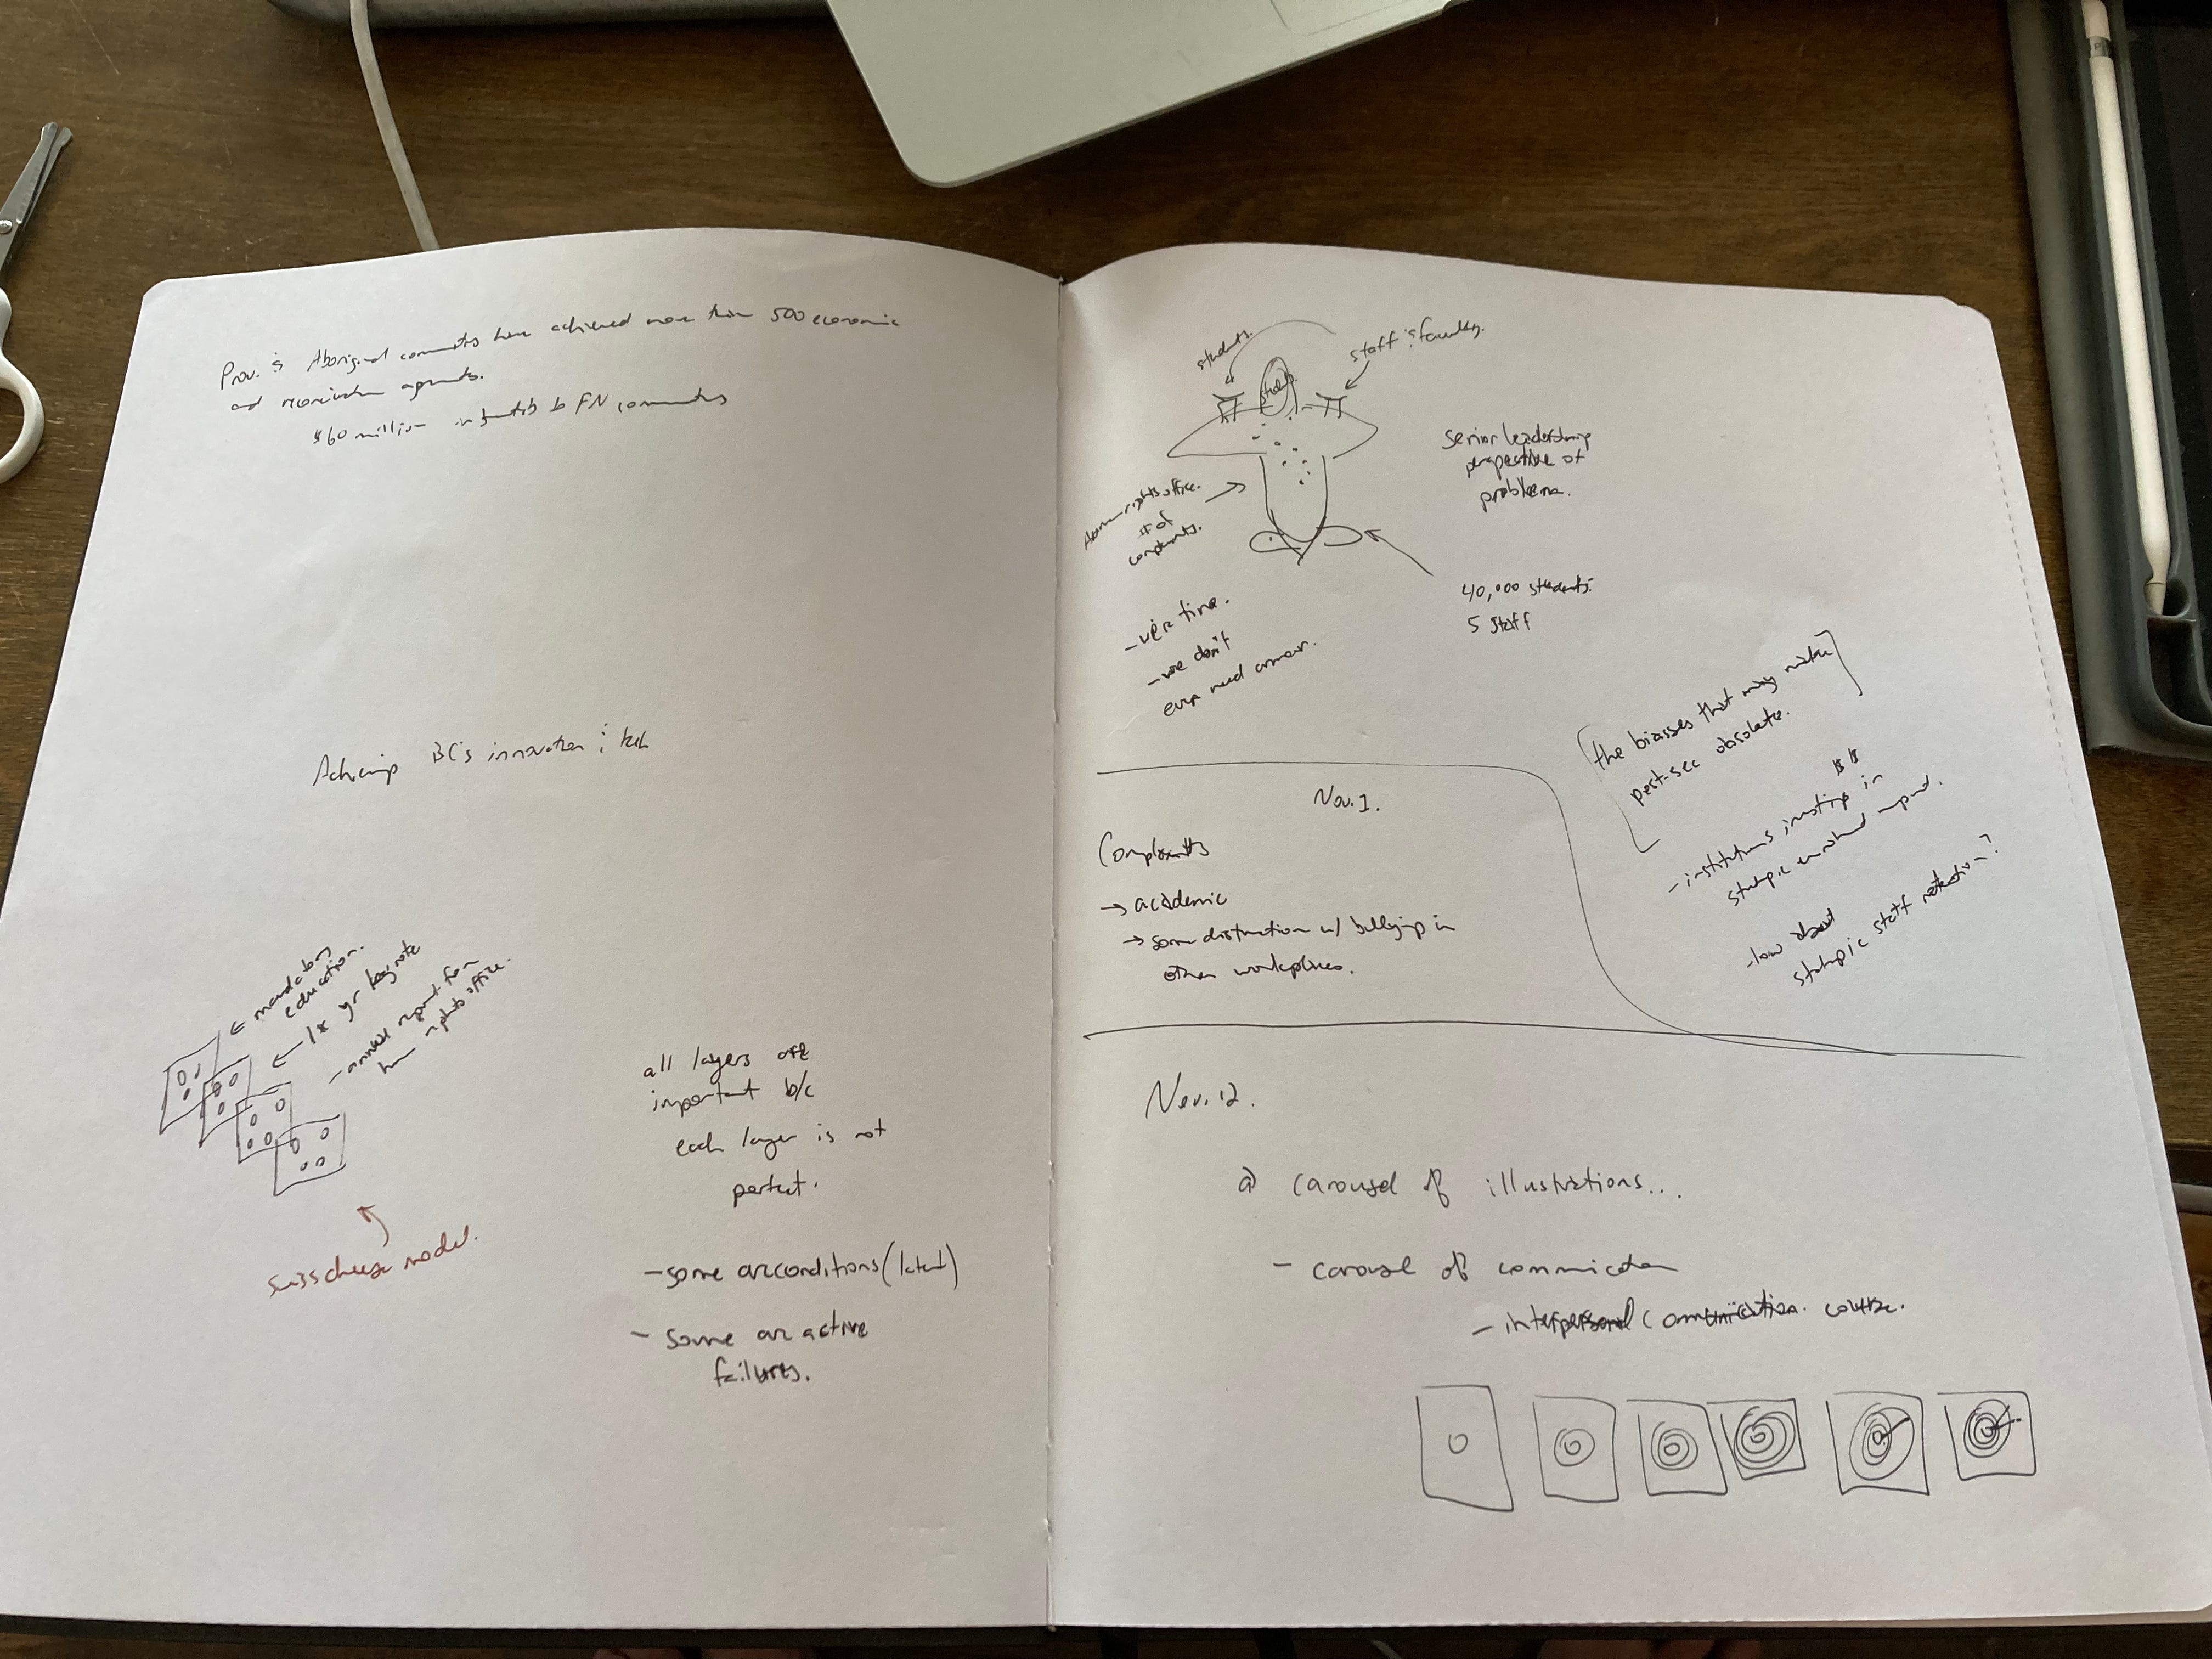 Prov. & Aboriginal have achieved more than 500 economic
and reconciliation
$60 million to FN communities
Achieving BC's innovation & tech
← mandatory
education.
← 1x yr keynote
- annual report from
human rights office.
swiss cheese model.
all layers are
important b/c
each layer is not
perfect.
- some are conditions (latent)
- some are active
failures.
students.
staff & faculty.
senior leadership
perspective of
problems.
human rights office.
# of
complaints.
40,000 students.
5 staff
- we're fine.
- we don't
even need armour.
the biasses that may make
post-sec obsolete.
$$
- institutions investing in
strategic enrolment
about
strategic staff retention?
Nov. 1.
Complaints
→ academic
→ some distinction w/ bullying in
other workplaces.
Nov. 12.
a) carousel of illustrations...
- carousel of
- interpersonal communication course.